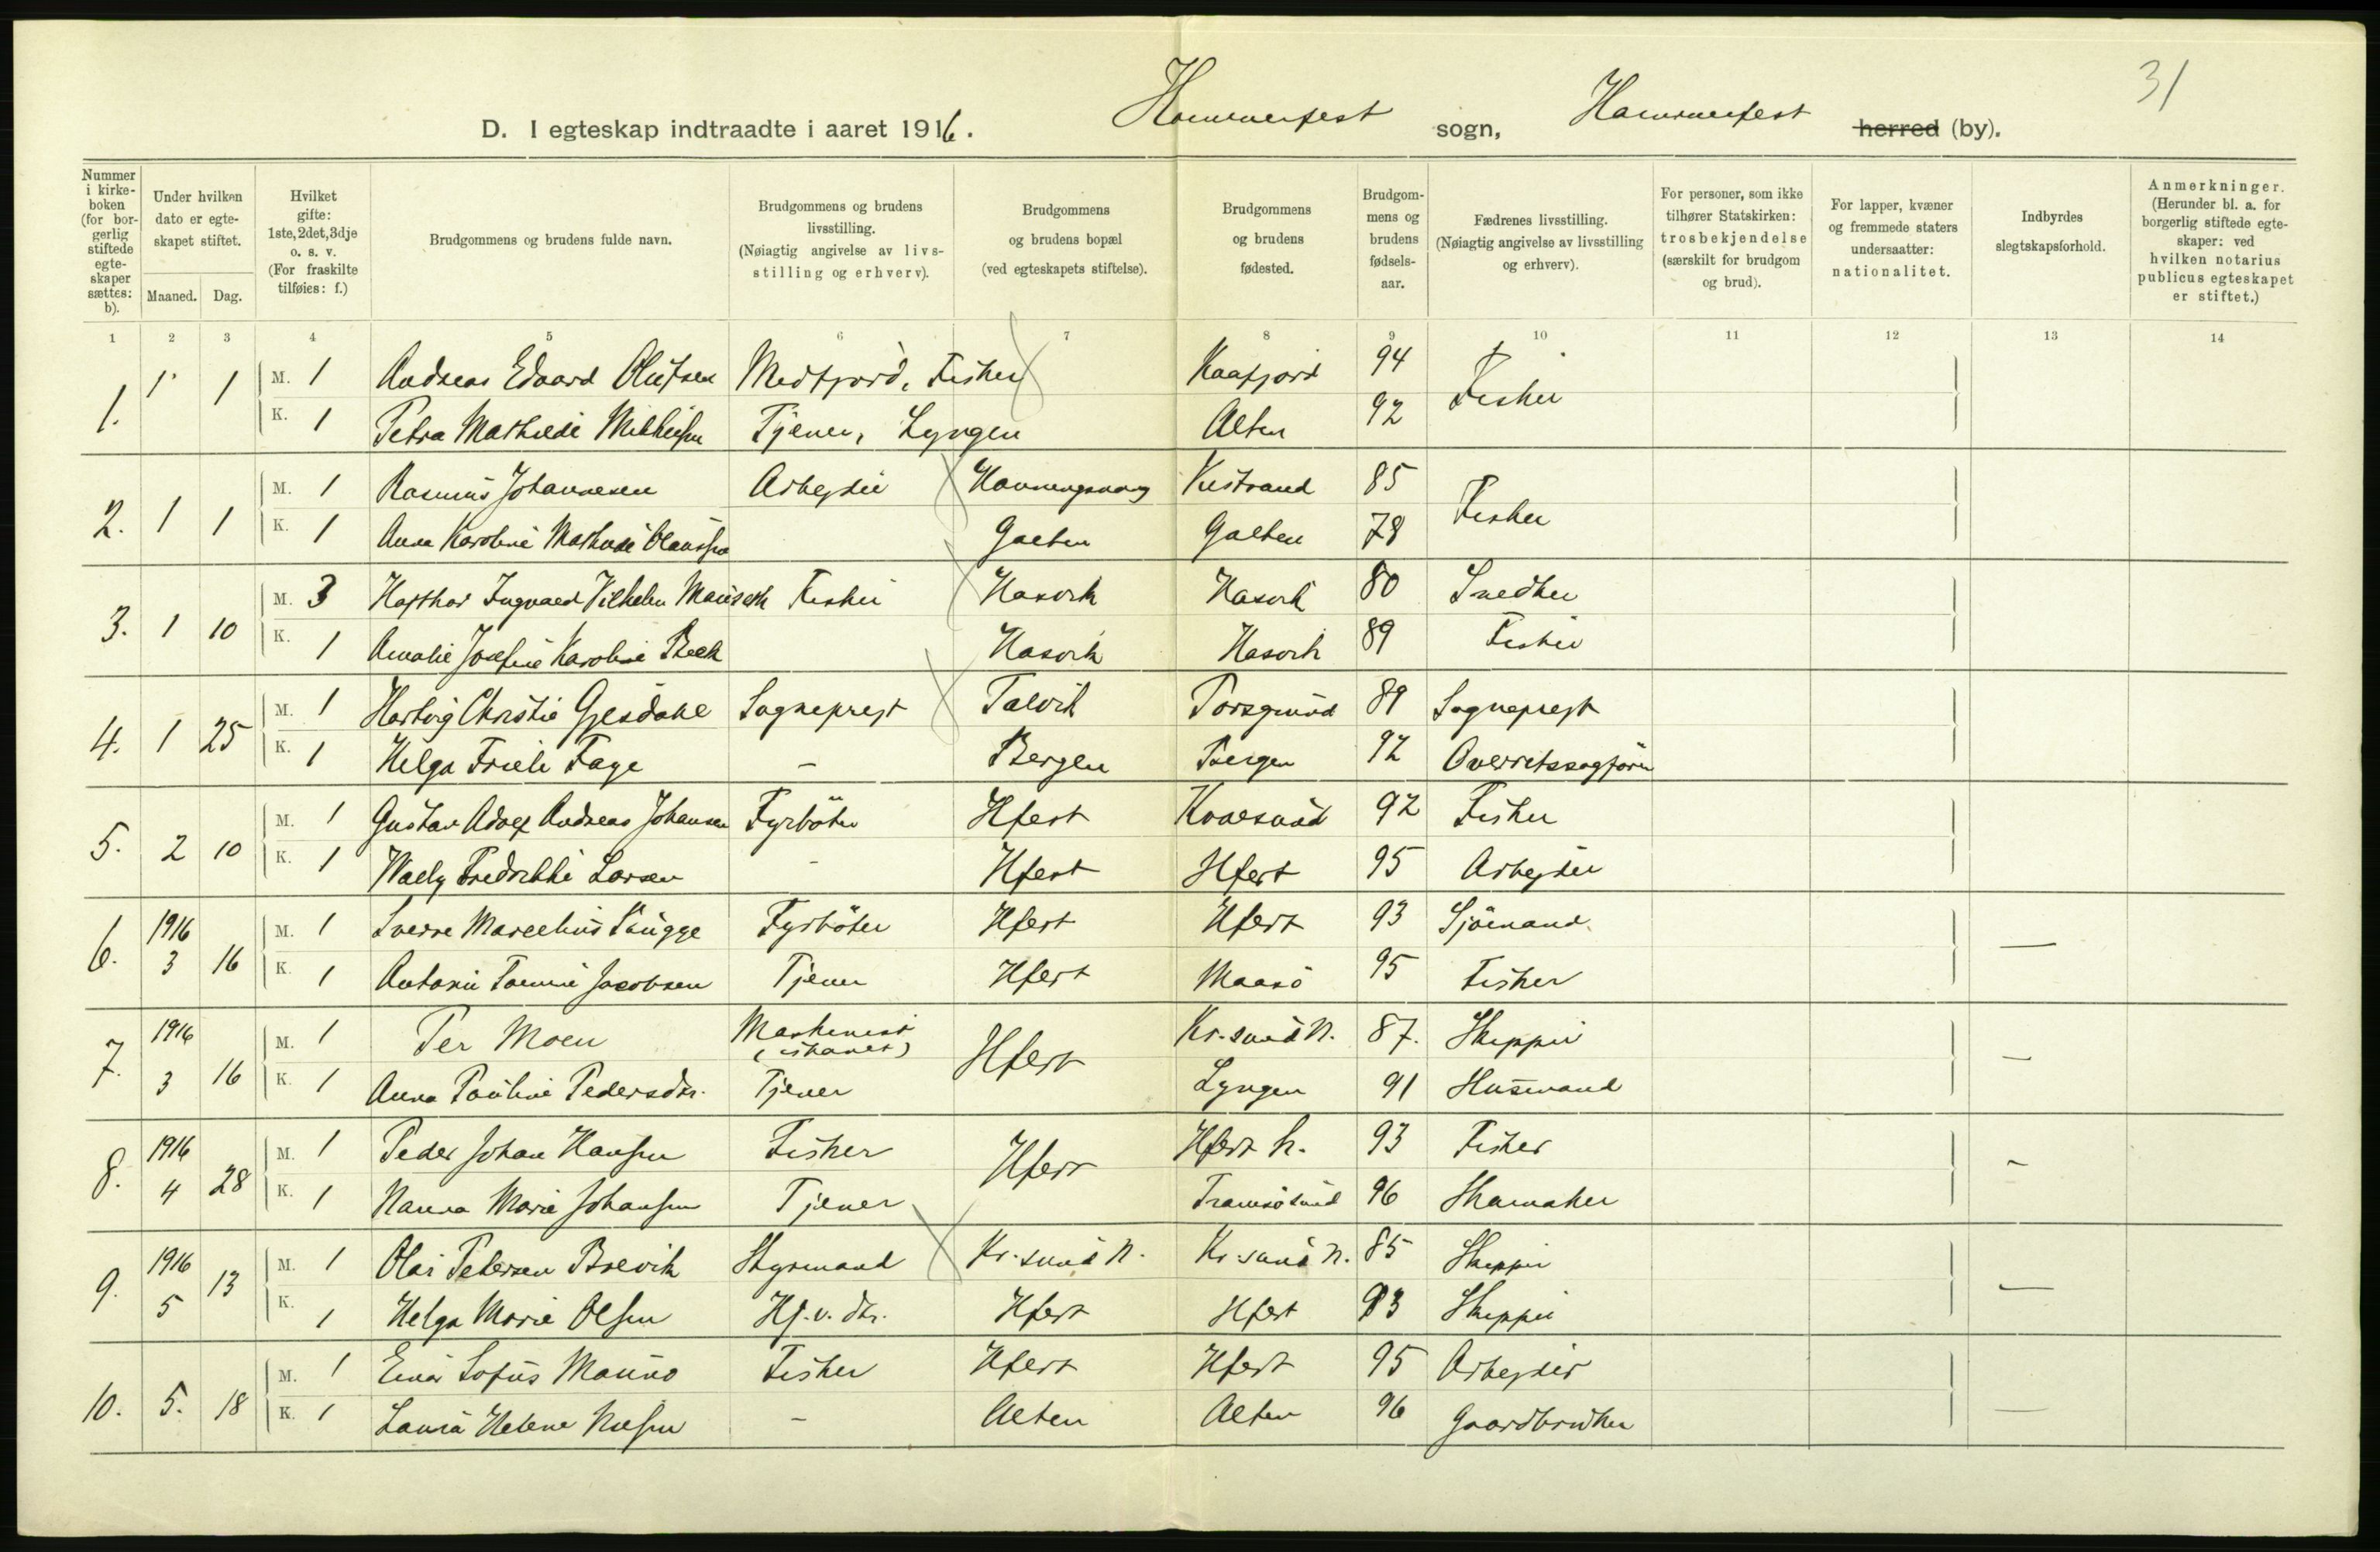 31
D. I egteskap indtraadte i aaret 1916. Hammerfest sogn, Hammerfest herred (by).
Nummer i kirke-boken (for bor-gerlig stiftede egte-skaper sættes: b).
Under hvilken dato er egte-skapet stiftet.
Maaned. Dag.
Hvilket gifte: 1ste, 2det, 3dje o. s. v. (For fraskilte tilføies: f.)
Brudgommens og brudens fulde navn.
Brudgommens og brudens livsstilling. (Nøiagtig angivelse av livs-stilling og erhverv).
Brudgommens og brudens bopæl (ved egteskapets stiftelse).
Brudgommens og brudens fødested.
Brudgom-mens og brudens fødsels-aar.
Fædrenes livsstilling. (Nøiagtig angivelse av livsstilling og erhverv).
For personer, som ikke tilhører Statskirken: trosbekjendelse (særskilt for brudgom og brud).
For lapper, kvæner og fremmede staters undersaatter: nationalitet.
Indbyrdes slegtskapsforhold.
Anmerkninger. (Herunder bl. a. for borgerlig stiftede egte-skaper: ved hvilken notarius publicus egteskapet er stiftet.)
1 2 3 4 5 6 7 8 9 10 11 12 13 14
1. 1 1 M. 1 Andreas Edvard Olufsen Medfjord, Fisker Kaafjord 94 Fisker
K. 1 Petra Mathilde Tjener, Lyngen Alten 92
2. 1 1 M. 1 Rasmus Johannesen Arbejder Honningsvaag Kistrand 85 Fisker
K. 1 Anna Karoline Mathilde Galten Galten 78
3. 1 10 M. 3 Ingvald Vilhelm Fisker Hasvik Hasvik 80 Snedker
K. 1 Amalie Josefine Karoline Beck Hasvik Hasvik 89 Fisker
4. 1 25 M. 1 Hartvig Christie Gjesdahl Sogneprest Talvik Porsgrund 89 Sogneprest
K. 1 Helga Friele Fage — Bergen Bergen 92 Overretssagfører
5. 2 10 M. 1 Gustav Adolf Andreas Johansen Fyrböter Hfest Kvalsund 92 Fisker
K. 1 Fredrikke Larsen - Hfest Hfest 95 Arbejder
6. 1916 3 16 M. 1 Sverre Marcelius Hfest Hfest 93 Sjömand —
Fyrböter
K. 1 Jacobsen Tjener Hfest Maasö 95 Fisker
7. 1916 3 16 M. 1 Per Moen Maskinist Hfest Kr.sund N. 87. Skipper —
K. 1 Anna Pauline Pedersdtr. Tjener Lyngen 91 Husmand
8. 1916 4 28 M. 1 Peder Johan Hansen Fisker Hfest Hfest h. 93 Fisker —
K. 1 Hanna Marie Johansen Tjener Tromsösund 96 Skomaker
9. 1916 5 13 M. 1 Olai Petersen Brevik Styrmand Kr.sund N. Kr.sund N. 85 Skipper —
K. 1 Helga Marie Olsen Hj.v. dtr. Hfest Hfest 93 Skipper
10. 5. 18 M. 1 Einar Sofus Fisker Hfest Hfest 95 Arbejder —
K. 1 Laura Helene Nilsen — Alten Alten 96 Gaardbruker